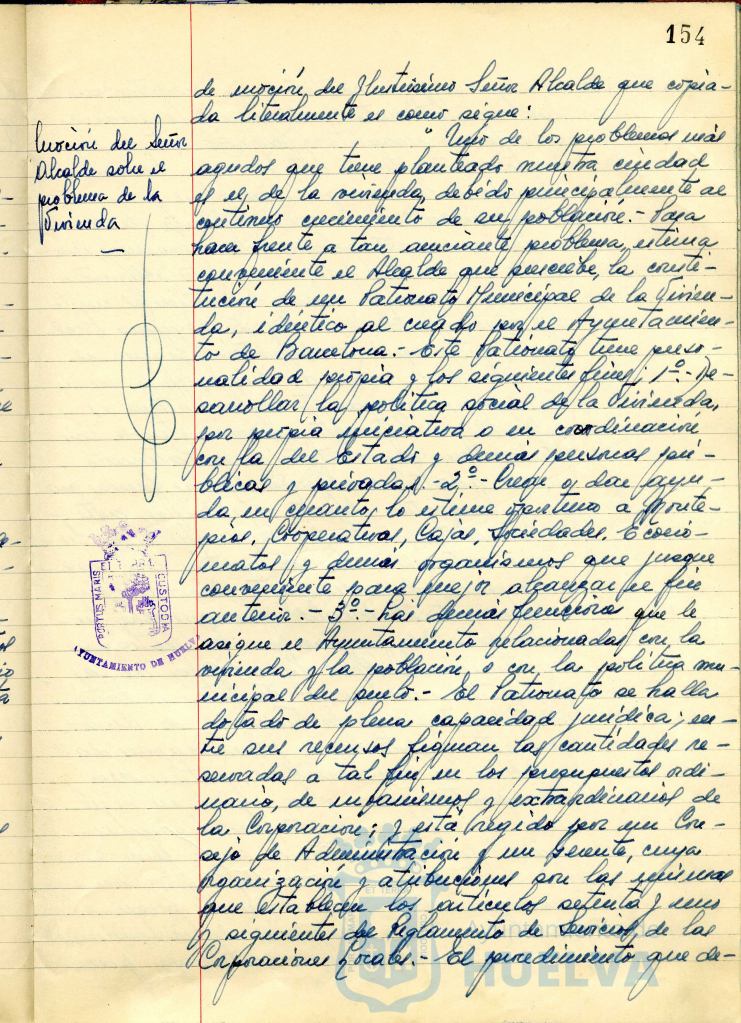 154
de moción, del Ilustrísimo Señor Alcalde que copia-
da literalmente es como sigue:
Moción del Señor
Alcalde sobre el
problema de la
Vivienda
"Uno de los problemas más
agudos que tiene planteado nuestra ciudad
es el de la vivienda, debido principalmente al
contínuo crecimiento de su población.- Para
hacer frente a tan acuciante problema, estima
conveniente el Alcalde que suscribe, la consti-
tución de un Patronato Municipal de la Vivien-
da, idéntico al creado por el Ayuntamien-
to de Barcelona.- Este Patronato tiene perso-
nalidad propia y los siguientes fines; 1º.- De-
sarrollar la política social de la Vivienda,
por propia iniciativa o en coordinación
con la del Estado y demás personas pú-
blicas y privadas.- 2º.- Crear y dar ayu-
da, en cuanto, lo estime oportuno a Monte-
píos, Cooperativas, Cajas, Sociedades, Econo-
matos y demás organismos que juzgue
conveniente para mejor alcanzar el fin
anterior.- 3º.- Las demás funciones que le
asigne el Ayuntamiento relacionadas con la
vivienda y la población, o con la política mu-
nicipal del suelo.- El Patronato se halla
dotado de plena capacidad jurídica; en-
tre sus recursos figuran las cantidades re-
servadas a tal fin en los presupuestos ordi-
nario, de urbanismos y extraordinarios de
la Corporación; y está regido por un Con-
sejo de Administración y un Gerente, cuya
organización y atribuciones son las mismas
que establecen los artículos setenta y uno
y siguientes del Reglamento de Servicios de las
Corporaciones Locales.- El procedimiento que de-
PORTUS MARIS
CUSTODIA
AYUNTAMIENTO DE HUELVA
HUELVA